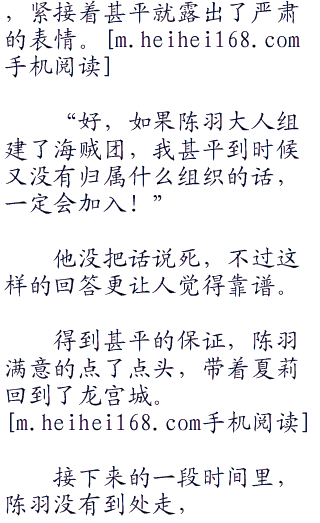 ，紧接着甚平就露出了严肃
的表情。[m.heihei168.com
手机阅读]
“好，如果陈羽大人组
建了海贼团，我甚平到时候
又没有归属什么组织的话，
一定会加入！”
他没把话说死，不过这
样的回答更让人觉得靠谱。
得到甚平的保证，陈羽
满意的点了点头，带着夏莉
回到了龙宫城。
[m.heihei168.com手机阅读]
接下来的一段时间里，
陈羽没有到处走，